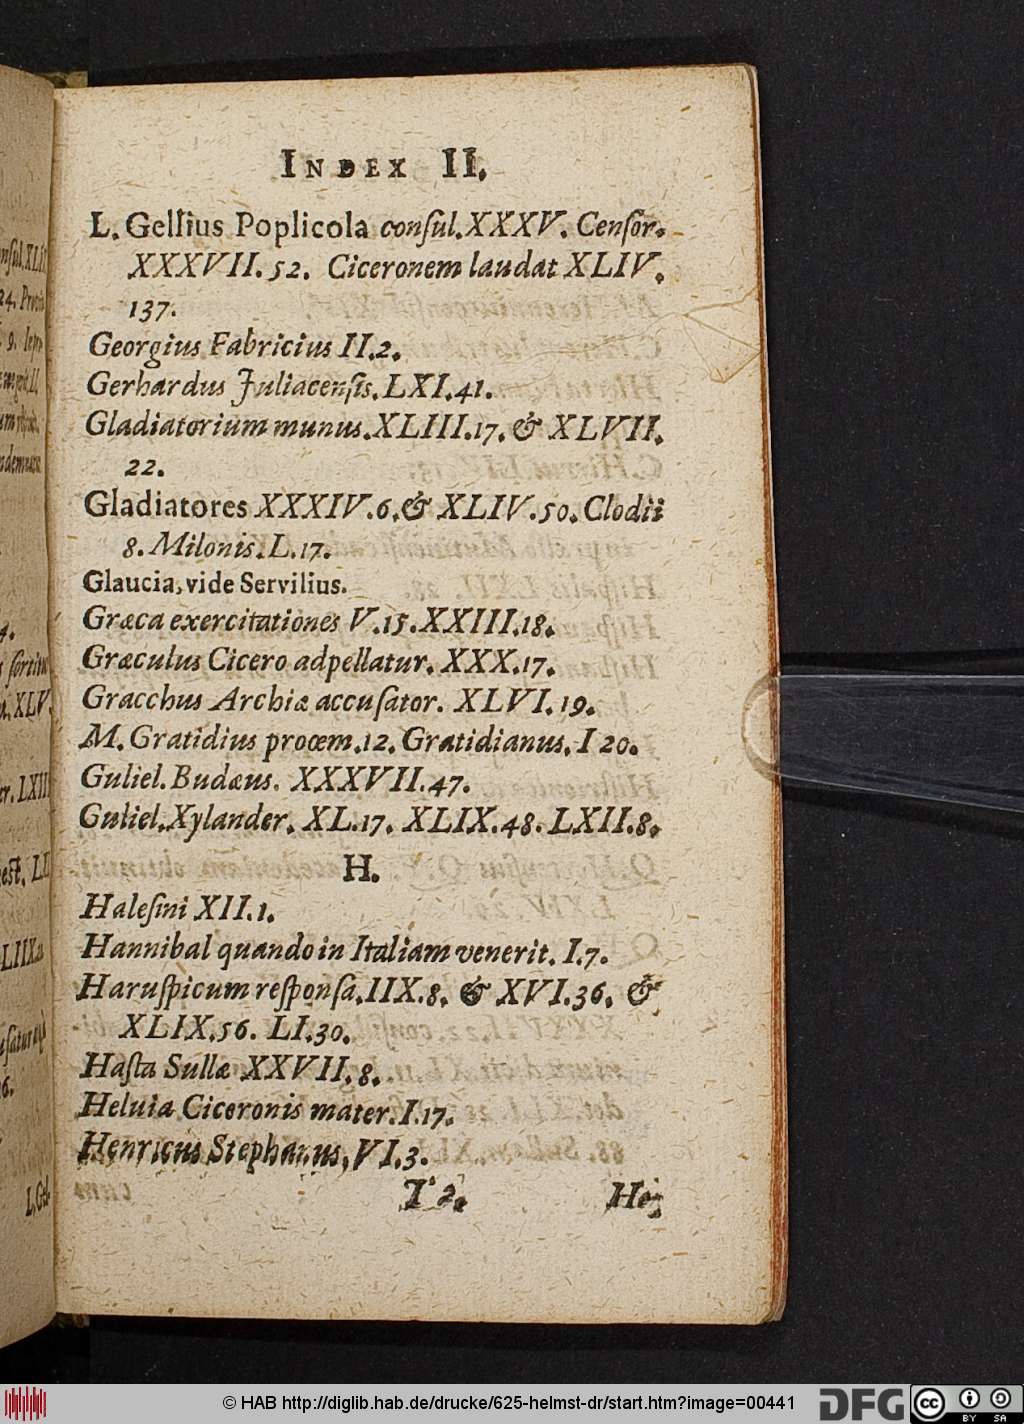 INDEX II.
L. Gellius Poplicola conſul. XXXV. Cenſor.
XXXVII. 52. Ciceronem laudat XLIV.
137.
Georgius Fabricius II.2.
Gerhardus Juliacenſis. LXI.41.
Gladiatorium munus. XLIII.17. & XLVII.
22.
Gladiatores XXXIV.6. & XLIV.50. Clodii
8. Milonis. L.17.
Glaucia, vide Servilius.
Græca exercitationes V.15. XXIII.18.
Græculus Cicero adpellatur. XXX.17.
Gracchus Archiæ accuſator. XLVI.19.
M. Gratidius procem.12. Gratidianus. I 20.
Guliel. Budæus. XXXVII.47.
Guliel. Xylander. XL.17. XLIX.48. LXII.8.
H.
Haleſini XII.1.
Hannibal quando in Italiam venerit. I.7.
Haruſpicum reſponſa. IIX.8. & XVI.36. &
XLIX.56. LI.30.
Haſta Sullæ XXVII.8.
Heluia Ciceronis mater. I.17.
Henricus Stephanus, VI.3.
T 2. He-
L. Gel-
© HAB http://diglib.hab.de/drucke/625-helmst-dr/start.htm?image=00441
DFG
cc BY SA